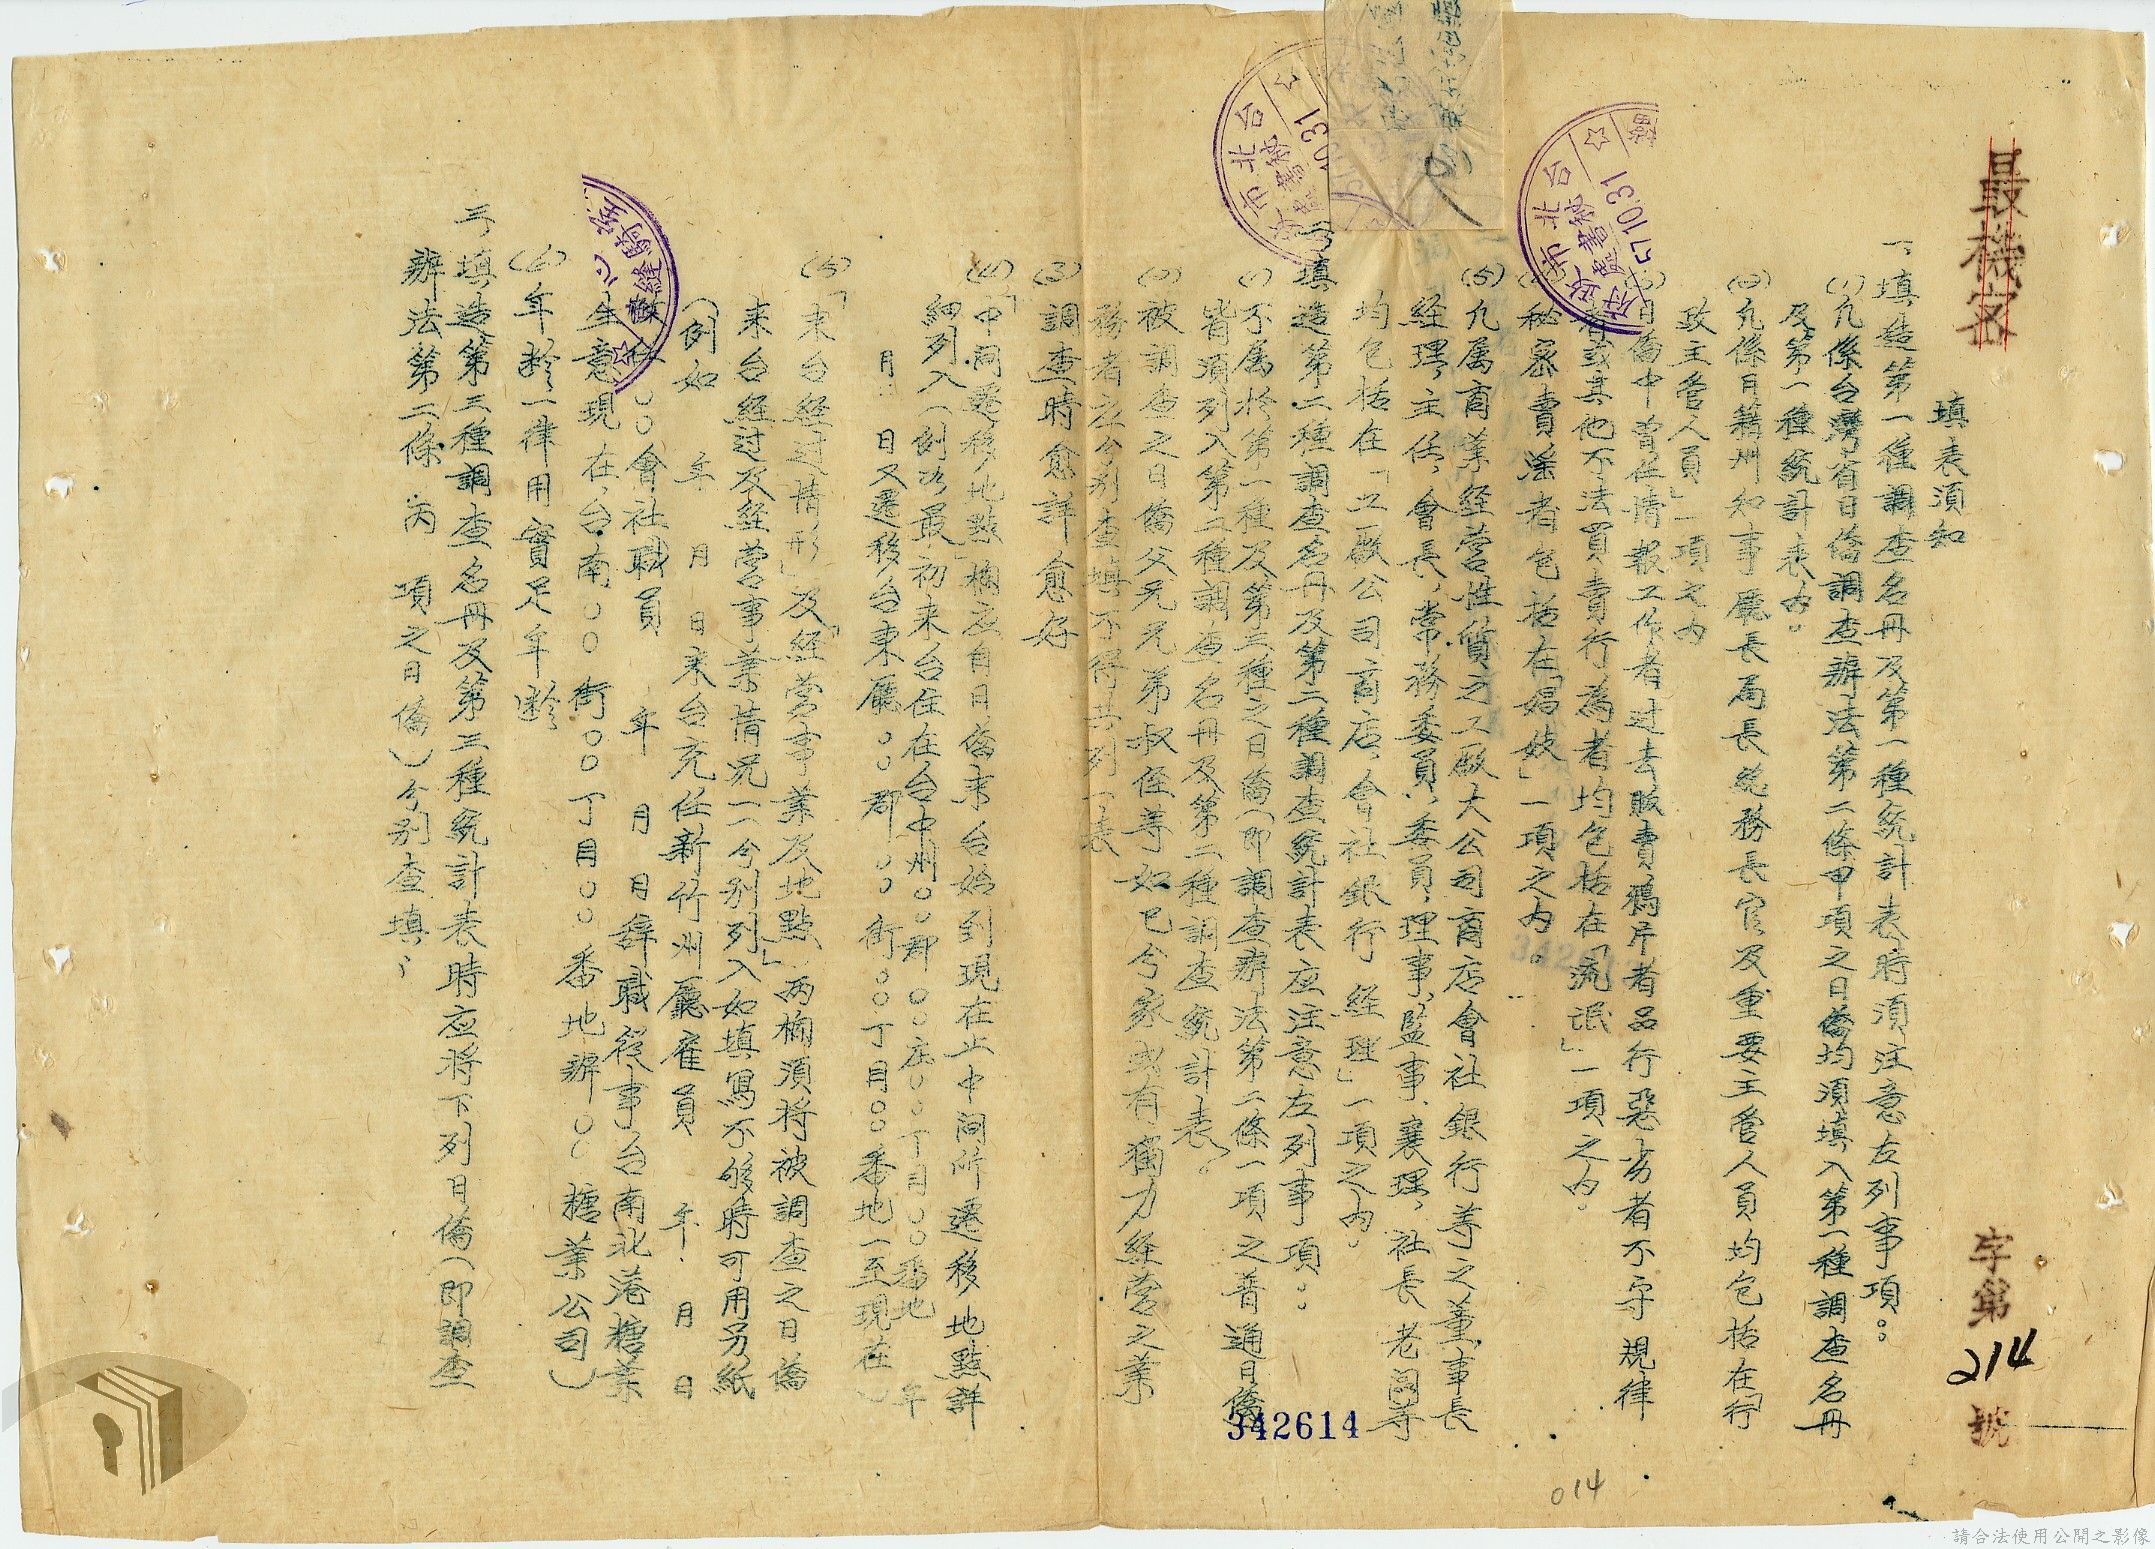 最機密
字第214號
填表須知
一、填造第一種調查名冊及第一種統計表時須注意左列事項：
(1)凡係台灣省日僑調查辦法第二條甲項之日僑均須填入第一種調查名冊
及第一種統計表內。
(2)凡係日籍州知事廳長局長總務長官及重要主管人員均包括在「行
政主管人員」一項之內
日僑中曾任情報工作者过去販賣鴉片者品行惡劣者不守規律
者或其他不法買賣行為者均包括在「流氓」一項之內。
秘密賣淫者包括在「娼妓」一項之內。
(5)凡属商業経营性質之工廠大公司商店會社銀行等之董事長
経理、主任、會長、常務委員、委員、理事、監事、襄理、社長老闆等
均包括在「工廠公司商店、會社銀行経理」一項之內。
二、填造第二種調查名冊及第二種調查統計表应注意左列事項：
(1)不属於第一種及第三種之日僑(即調查辦法第二條一項之普通日僑
皆須列入第二種調查名冊及第二種調查統計表。
(2)被調查之日僑父兄兄弟叔侄等如已分家或有獨力経营之業
務者应分别查填不得共列一表
(3)調查時愈詳愈好
(4)「中间遷移地點」欄应自日僑来台始到現在止中间所遷移地點詳
細列入(例如最初来台住在台中州○○郡○○庄○○丁目○○番地 年
月 日又遷移台東廳○○郡○○街○○丁目○○番地一至現在)
(5)「来台経过情形」及「経营事業及地點」两欄須将被調查之日僑
来台経过及経营事業情况一一分别列入如填寫不够時可用另紙
(例如 年 月 日来台充任新竹州廳雇員 年 月 日
○○會社職員 年 月 日辞職後事台南北港糖業
生意現在台南○○街○○丁目○○番地辦○○糖業公司)
(6)年齡一律用實足年齡
三、填造第三種調查名冊及第三種統計表時应将下列日僑(即調查
辦法第二條丙 項之日僑)分别查填、
台北市政府秘書處
10.31
騎縫章
342614
014
請合法使用公開之影像